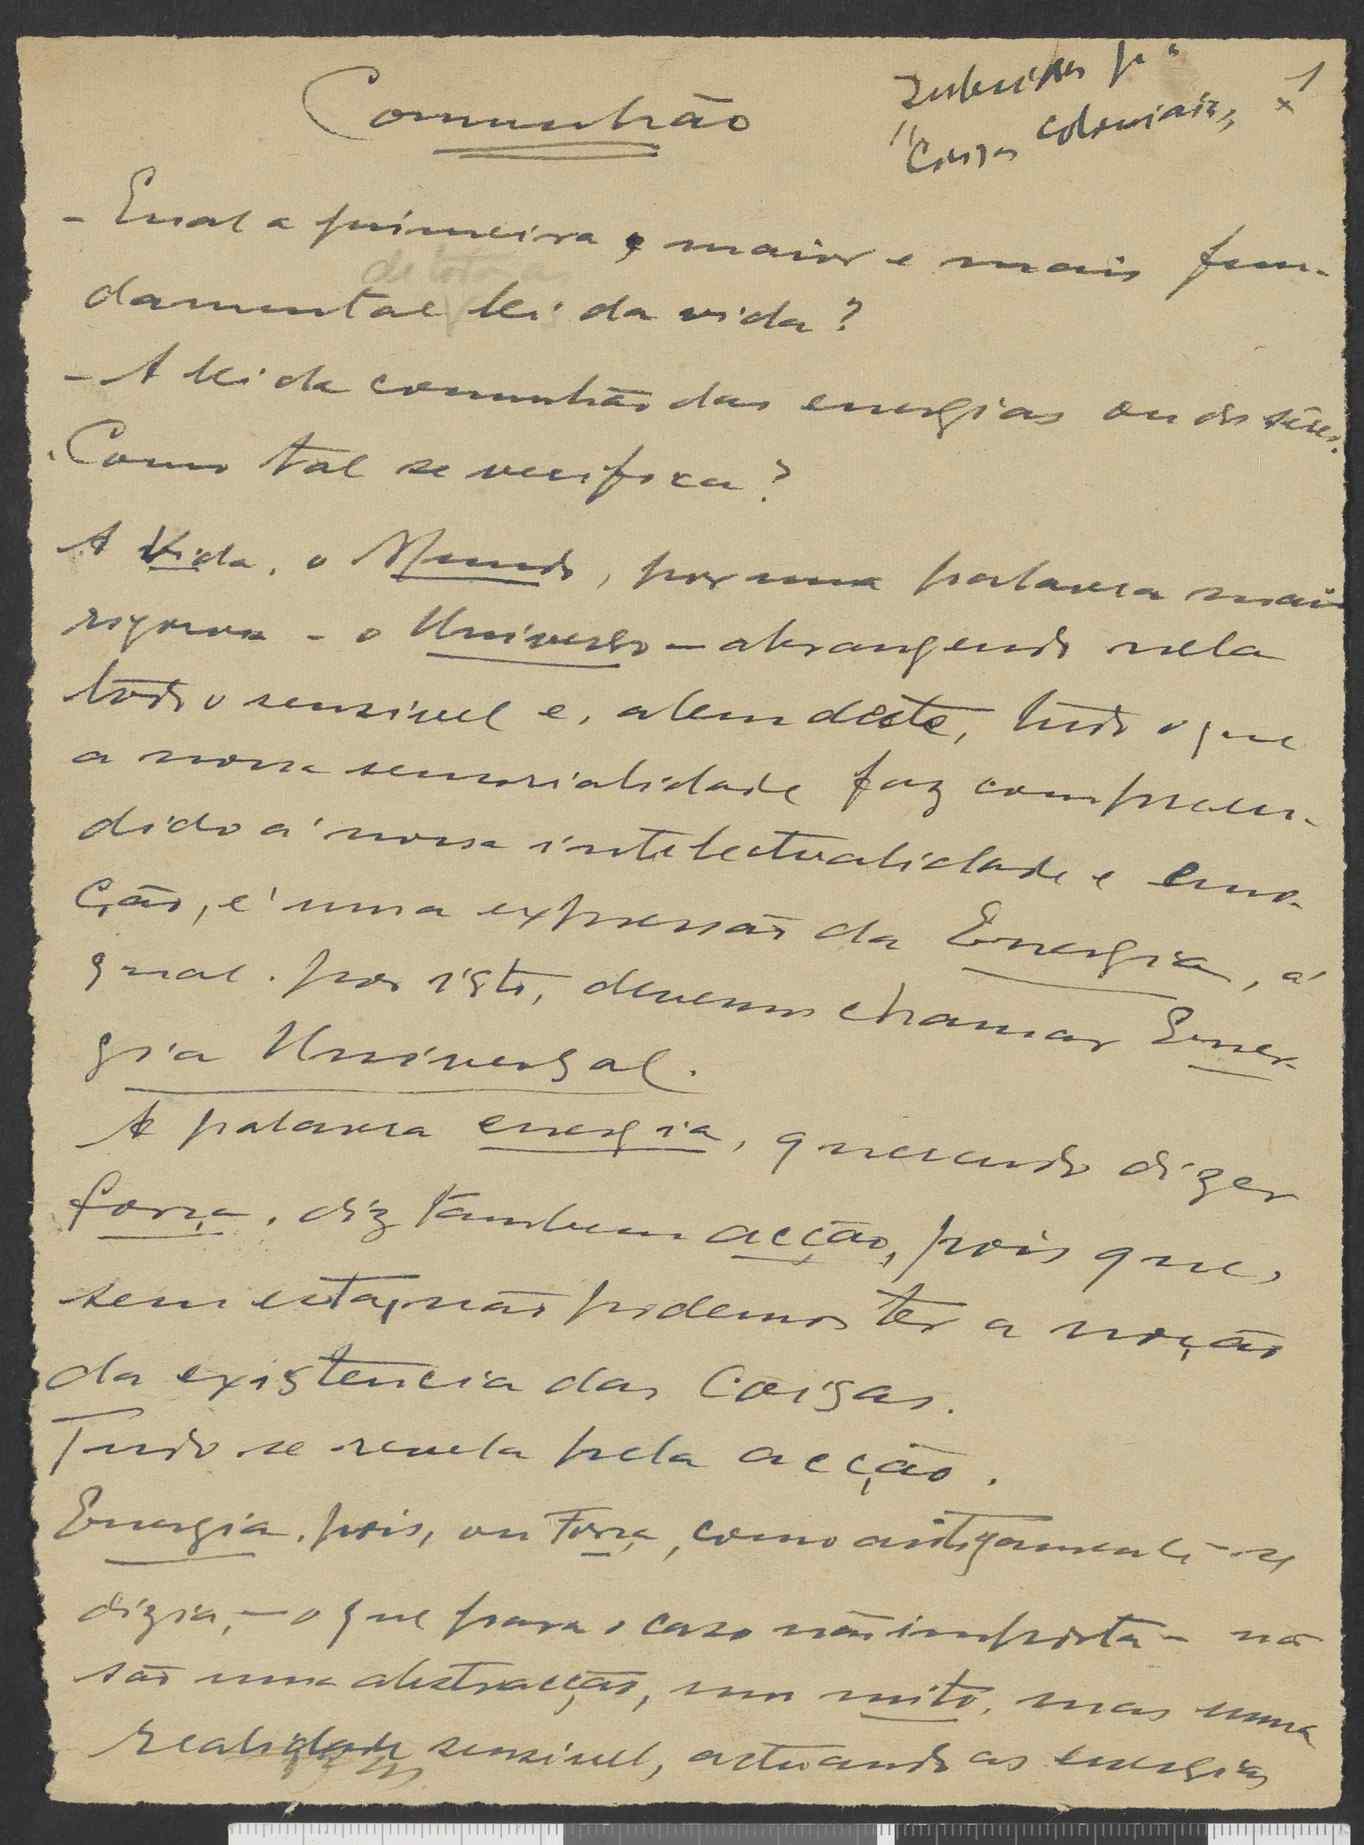 Comunhão
1
x
"Coisas coloniais"
- Qual a primeira, maior e mais fun-
de todas as
damental lei da vida?
- A lei da comunhão das energias ou dos sêres.
Como tal se verifica?
A Vida, o Mundo, por uma palavra mais
rigorosa - o Universo - abrangendo nela
todo o sensivel e, alem dêste, tudo o que
a nossa sensorialidade faz compreen-
dido á nossa intelectualidade e emo-
ção, é uma expressão da Energia, á
qual, por isto, devemos chamar Ener-
gia Universal.
A palavra energia, querendo dizer
força, diz tambem acção, pois que,
sem esta, não podemos ter a noção
da existencia das Coisas.
Tudo se revela pela acção.
Energia, pois, ou Força, como antigamente se
dizia, - o que para o caso não importa - não
são uma abstracção, um mito, mas uma
realidade sensivel, actuando as energias